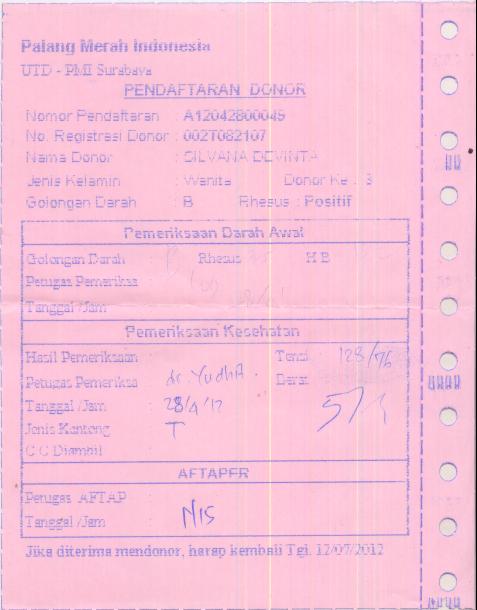 Palang Merah Indonesia
UTD - PMI Surabaya
PENDAFTARAN DONOR
Nomor Pendaftaran : A12042800049
No. Registrasi Donor : 002T082107
Nama Donor : SILVANA DEVINTA
Jenis Kelamin : Wanita Donor Ke : 3
Golongan Darah : B Rhesus : Positif
Pemeriksaan Darah Awal
Golongan Darah : B Rhesus HB
Petugas Pemeriksa
Tanggal /Jam
Pemeriksaan Kesehatan
Hasil Pemeriksaan : Tensi : 128/76
Petugas Pemeriksa : dr. Yudha. Berat
Tanggal /Jam : 28/4 '12
Jenis Kantong : T
C C Diambil :
AFTAPER
Petugas AFTAP :
Tanggal /Jam : NIS
Jika diterima mendonor, harap kembali Tgl. 12/07/2012